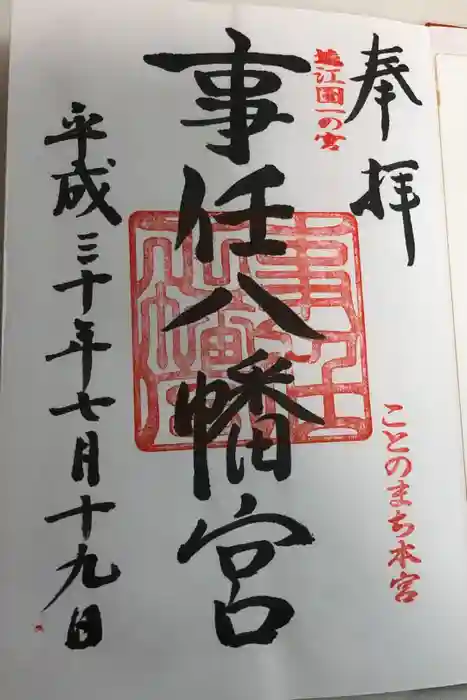 奉拝
遠江国一の宮
ことのまち本宮
事任八幡宮
平成三十年七月十九日